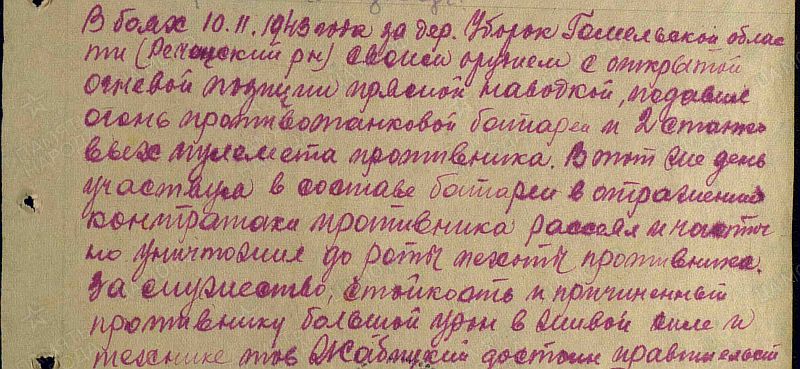 В боях 10.11.1943 года за дер. Уборок Гомельской облас
ти (Речицский рн) своим орудием с открытой
огневой позиции прямой наводкой, подавил
огонь противотанковой батареи и 2 станко
вых пулемета противника. В этот же день
участвуя в составе батареи в отражении
контратаки противника рассеял и частич
но уничтожил до роты пехоты противника.
За мужество, стойкость и причиненный
противнику большой урон в живой силе и
технике тов Жабицкий достоин правительст